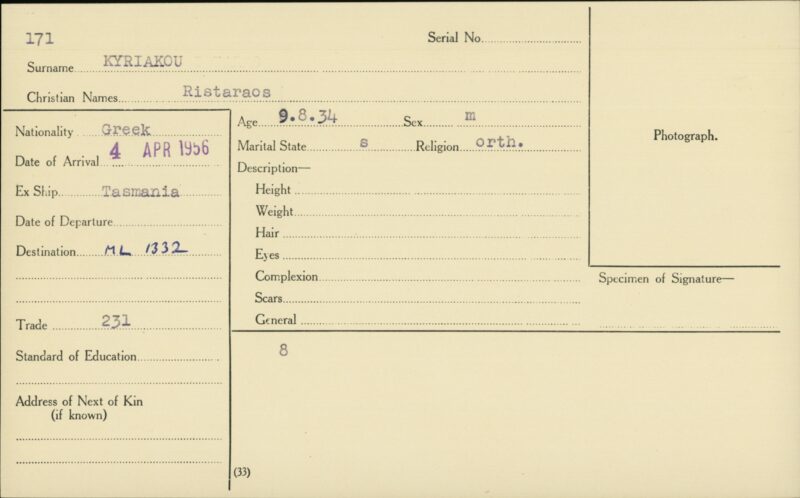 171
Serial No.
Surname KYRIAKOU
Christian Names Ristaraos
Nationality Greek
Date of Arrival 4 APR 1956
Ex Ship Tasmania
Date of Departure
Destination ML 1332
Trade 231
Standard of Education
Address of Next of Kin
(if known)
Age 9.8.34 Sex m
Marital State s Religion orth.
Description—
Height
Weight
Hair
Eyes
Complexion
Scars
General
8
(33)
Photograph.
Specimen of Signature—